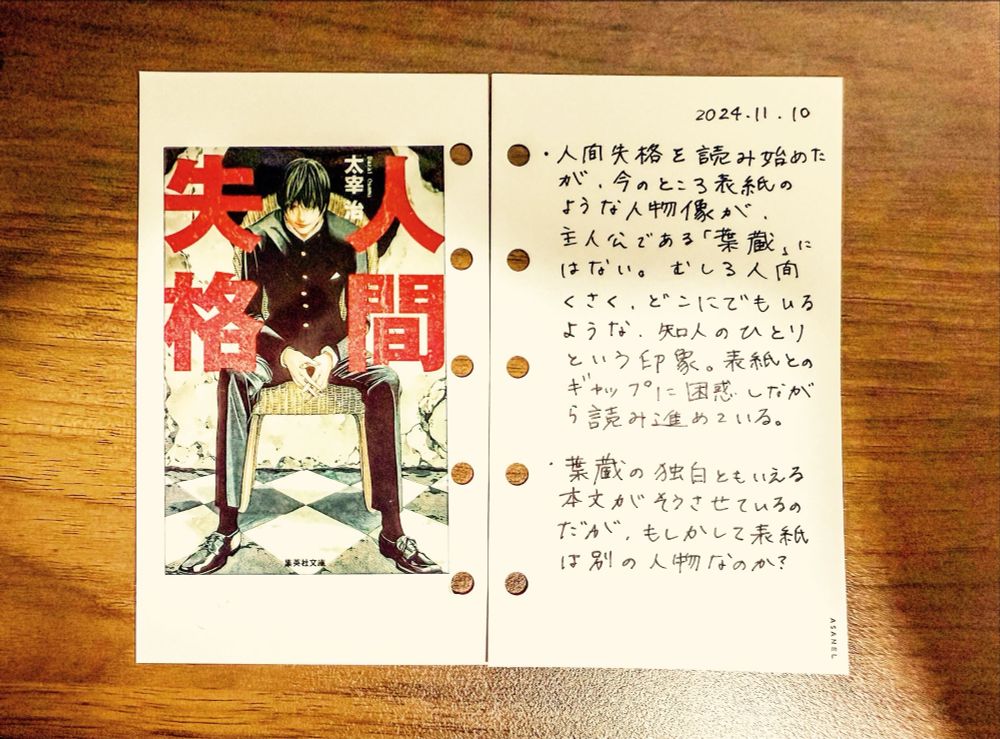 人間
失格
太宰 治
集英社文庫
2024.11.10
・人間失格を読み始めた
が、今のところ表紙の
ような人物像が、
主人公である「葉蔵」に
はない。むしろ人間
くさく、どこにでもいる
ような、知人のひとり
という印象。表紙との
ギャップに困惑しなが
ら読み進めている。
・葉蔵の独白ともいえる
本文がそうさせているの
だが、もしかして表紙
は別の人物なのか？
ASAMEL